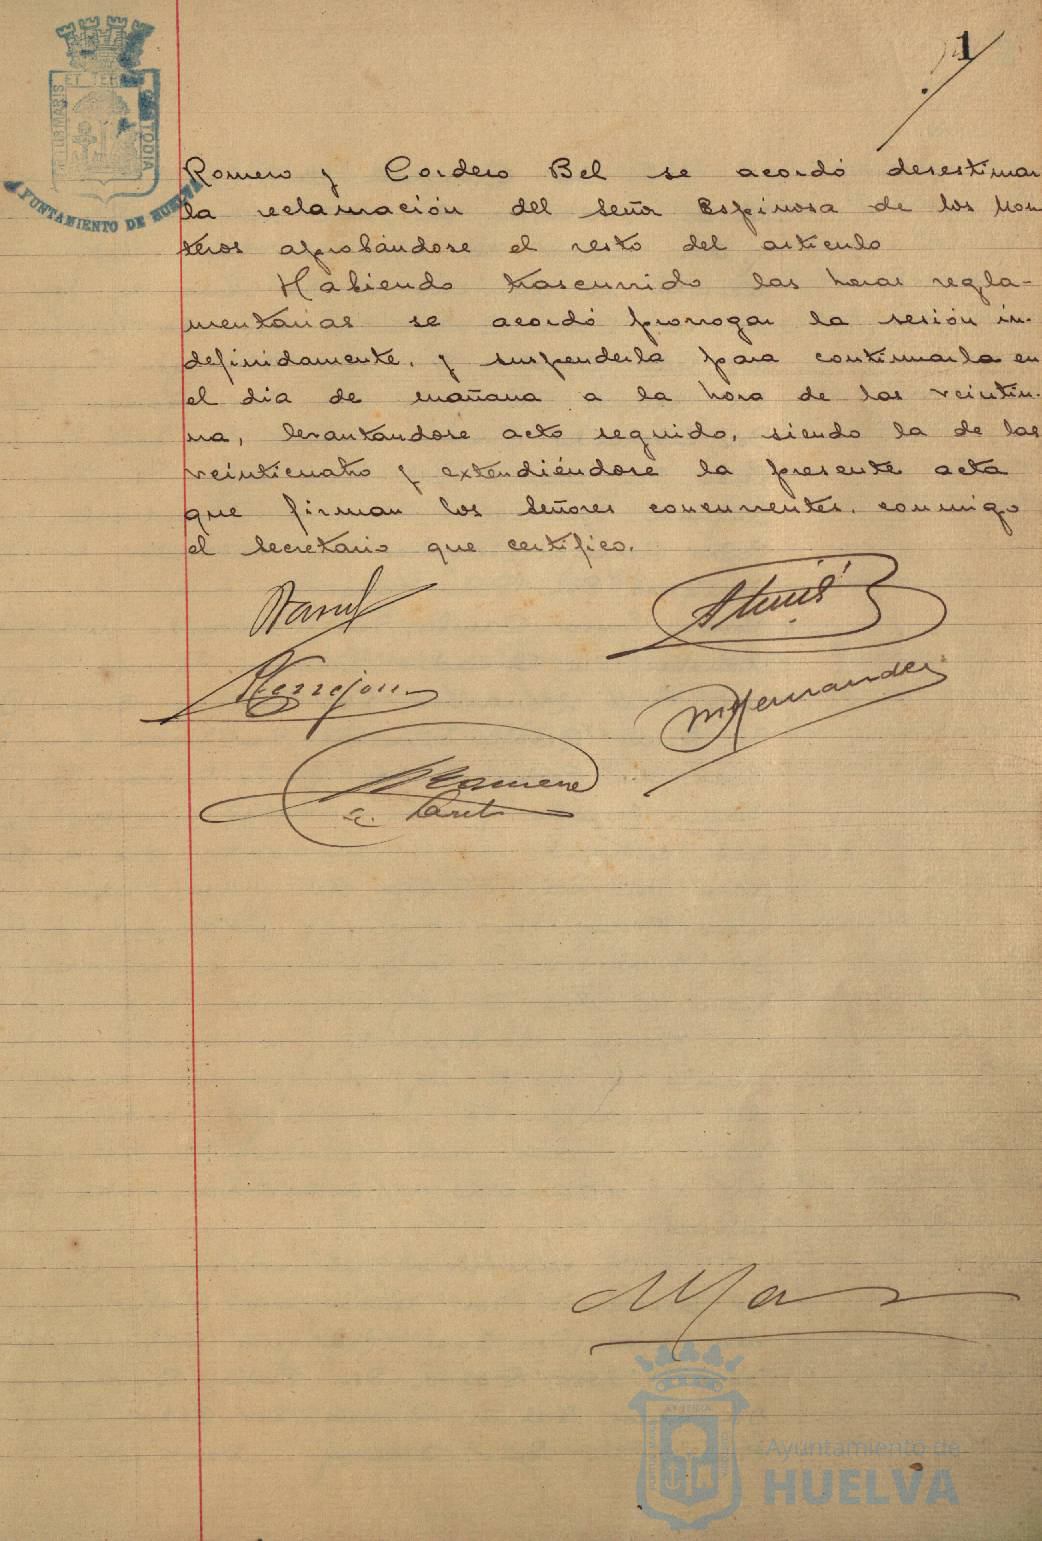 1
PORTUS MARIS ET TERRAE CUSTODIA
AYUNTAMIENTO DE HUELVA
Romero y Cordero Bel se acordó desestimar
la reclamación del Señor Espinosa de los Mon
teros aprobándose el resto del articulo
Habiendo trascurrido las horas regla-
mentarias se acordó prorrogar la sesión in-
definidamente, y suspenderla para continuarla en
el dia de mañana a la hora de las veintiu-
na, levantandose acto seguido, siendo la de las
veinticuatro y extendiéndose la presente acta
que firman los Señores concurrentes, conmigo
el Secretario que certifico.
Terrejon
M Hernandez
Romero
Ayuntamiento de
HUELVA